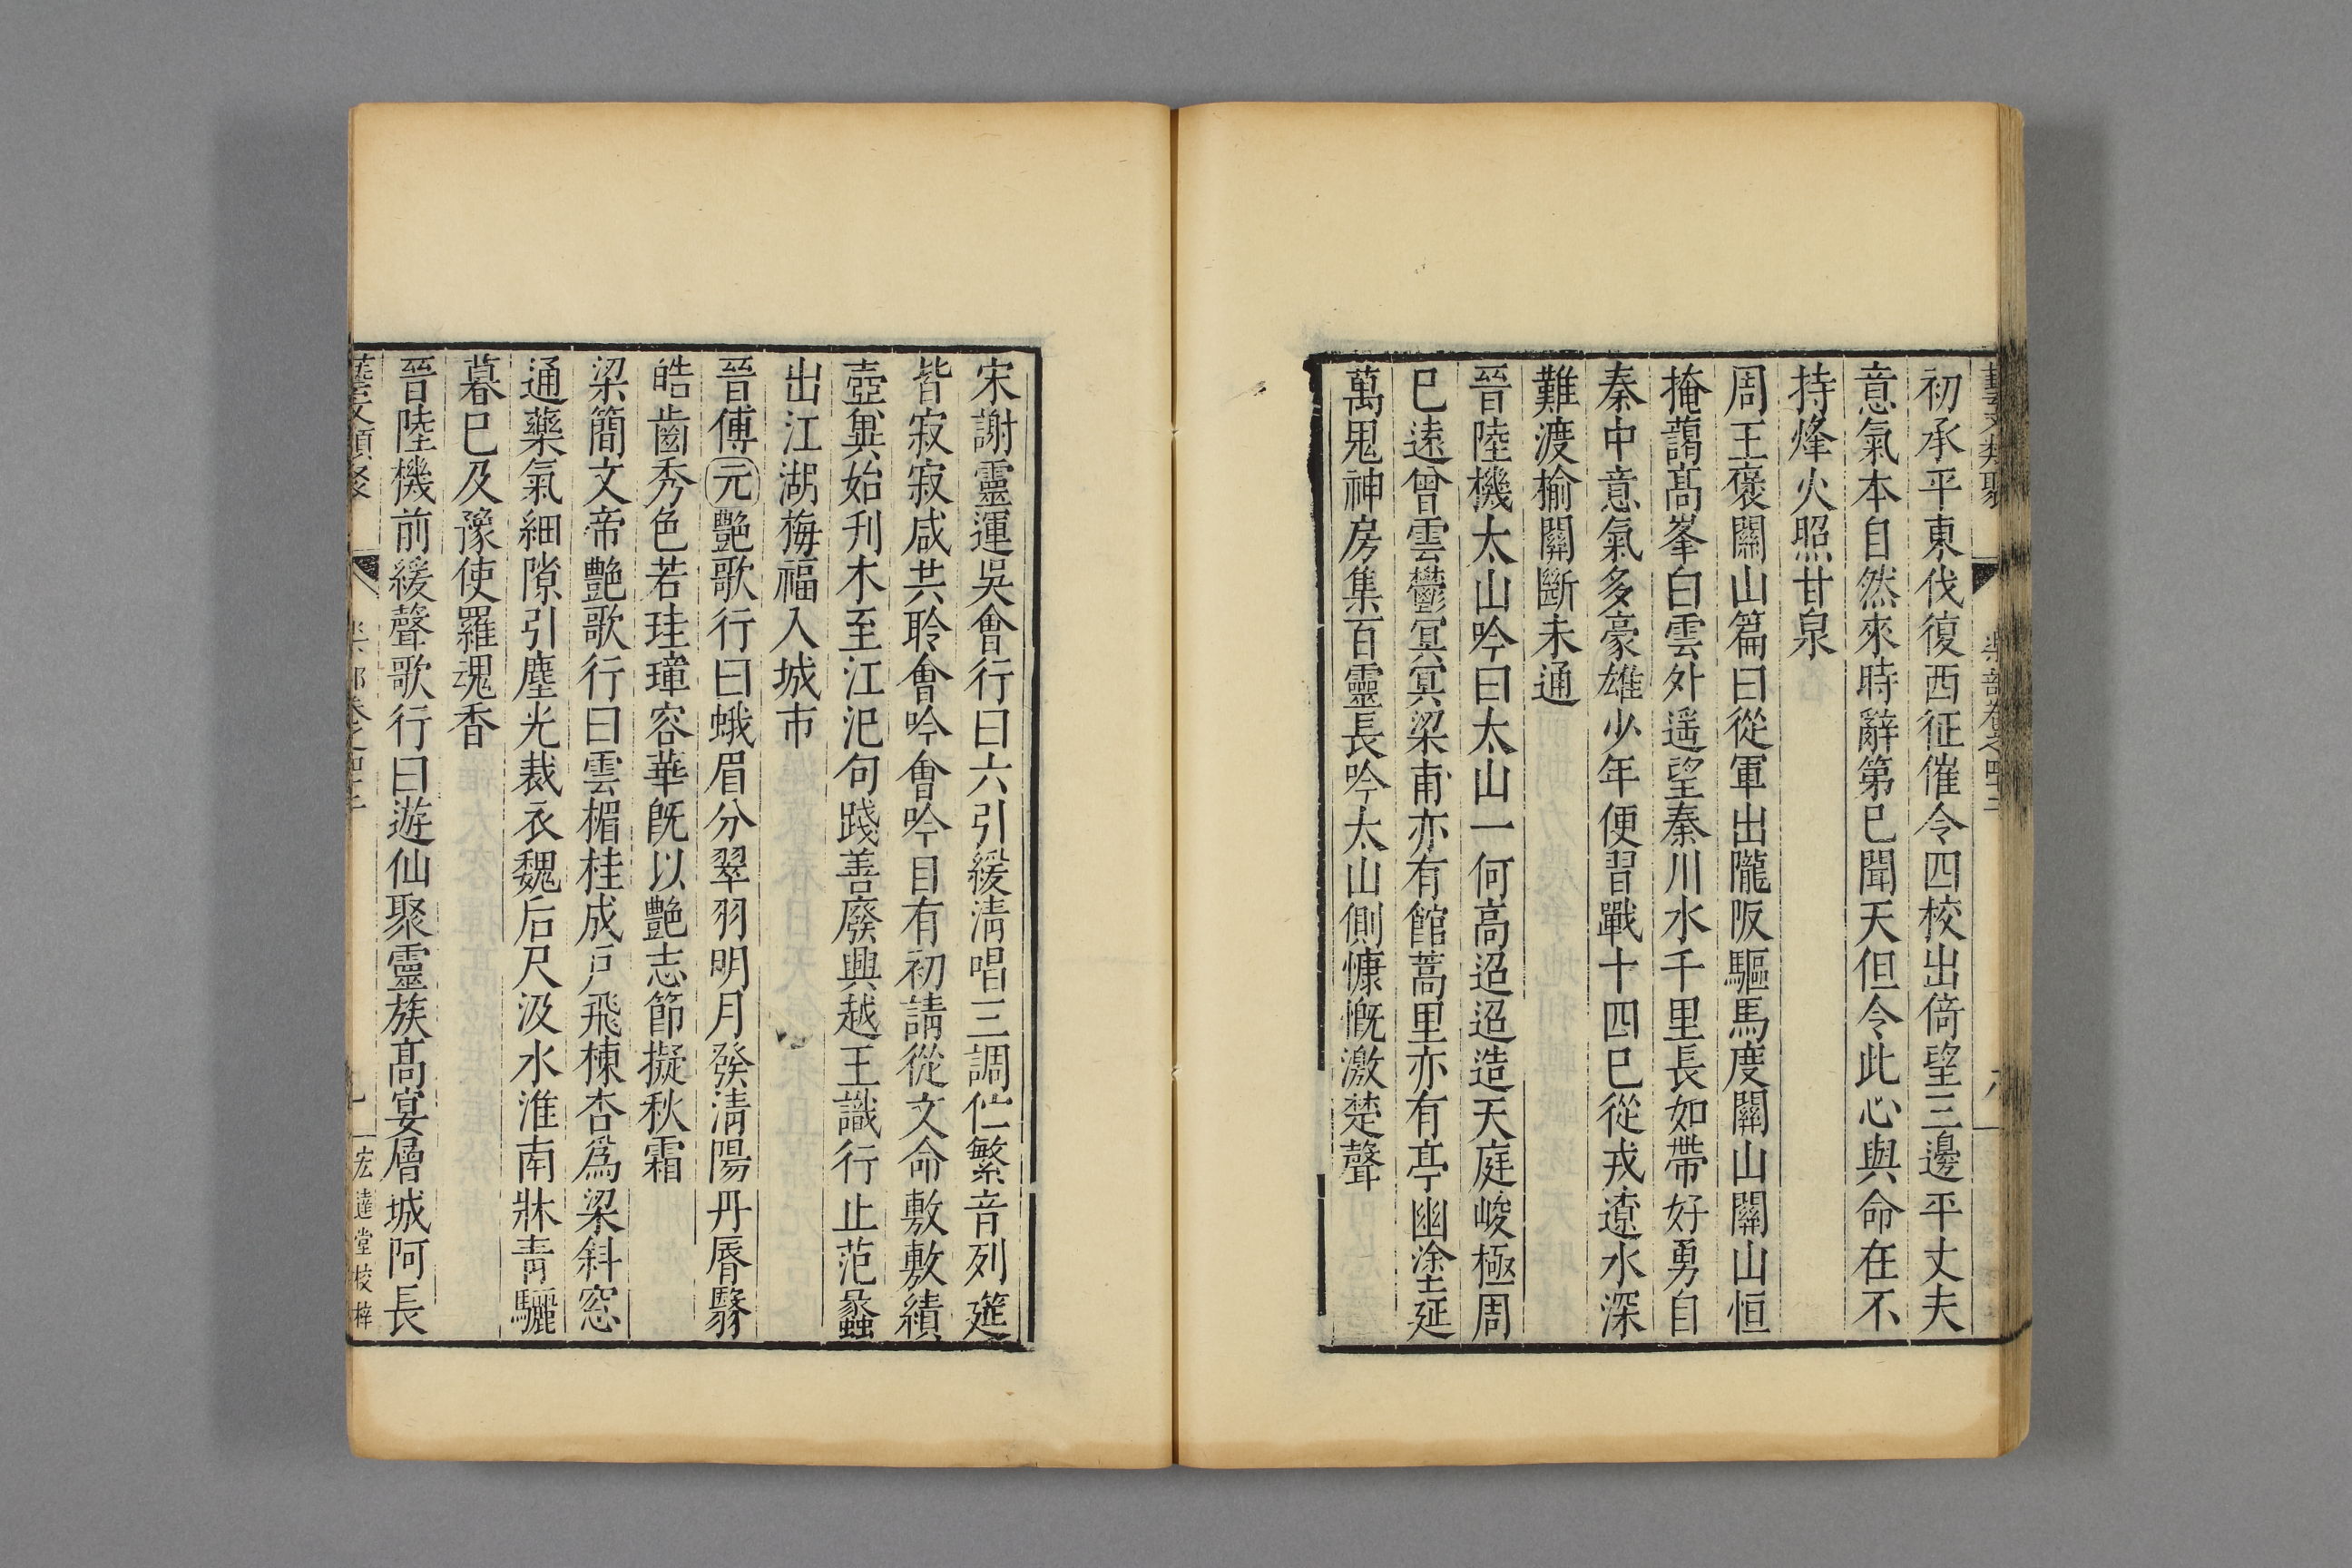 初承平東伐復西征催令四校出倚望三邊平丈夫
意氣本自然來時辭第已聞天但令此心與命在不
持烽火照甘泉
周王襃關山篇曰從軍出隴阪驅馬度關山關山恒
掩藹髙峯白雲外遥望秦川水千里長如帶好勇自
秦中意氣多豪雄少年便習戰十四已從戎遼水深
難渡榆關斷未通
晉陸機太山吟曰太山一何高迢迢造天庭峻極周
已遠曾雲鬱冥冥梁甫亦有館蒿里亦有亭幽塗延
萬鬼神房集百靈長吟太山側慷慨激楚聲
宋謝靈運吳會行曰六引緩淸唱三調伫繁音列筵
皆寂寂咸共聆會吟會吟自有初請從文命敷敷績
壺兾始刋木至江汜句踐善廢興越王識行止范蠡
出江湖梅福入城市
晉傅元艷歌行曰蛾眉分翠羽明月發淸陽丹脣翳
皓齒秀色若珪璋容華旣以艷志節擬秋霜
梁簡文帝艷歌行曰雲楣桂成戸飛棟杏爲梁斜窓
通藥氣細隙引塵光裁衣魏后尺汲水淮南牀靑驪
暮已及豫使羅魂香
晉陸機前緩聲歌行曰遊仙聚靈族髙宴層城阿長
藝文類聚 樂部卷之四十二 九 宏達堂校梓